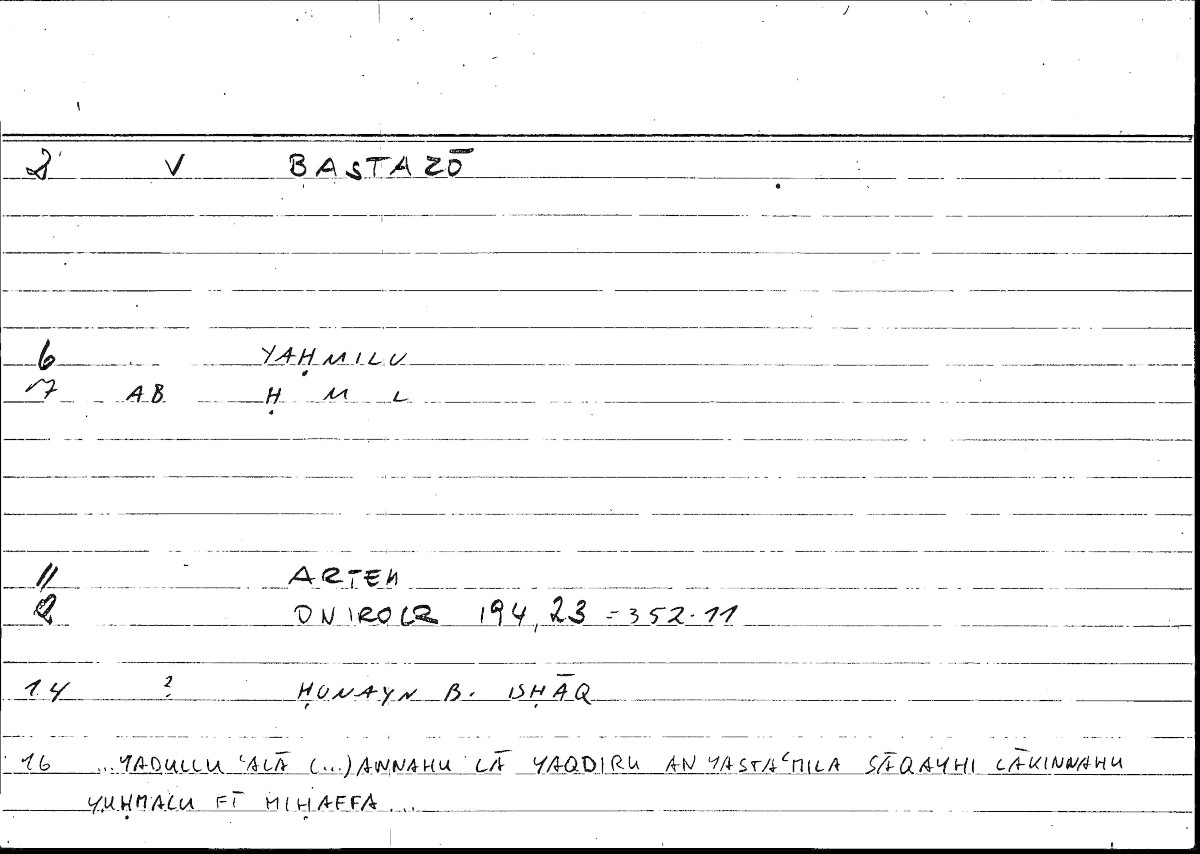 2 V BASTAZŌ
6 YAḤMILU
7 AB Ḥ M L
11 ARTEM
12 ONIROCR 194,23 = 352.11
14 ? ḤUNAYN B. ISḤĀQ
16 ...YADULLU ʿALĀ (...) ANNAHU LĀ YAQDIRU AN YASTAʿMILA SĀQAYHI LĀKINNAHU
YUḤMALU FĪ MIḤAFFA...